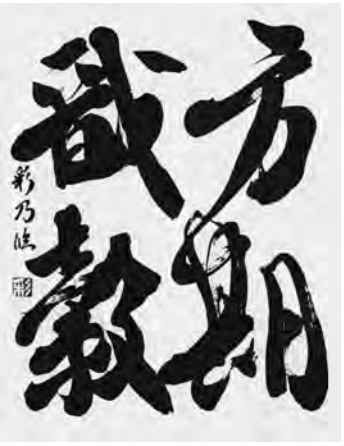 方期
戩穀
彩乃臨